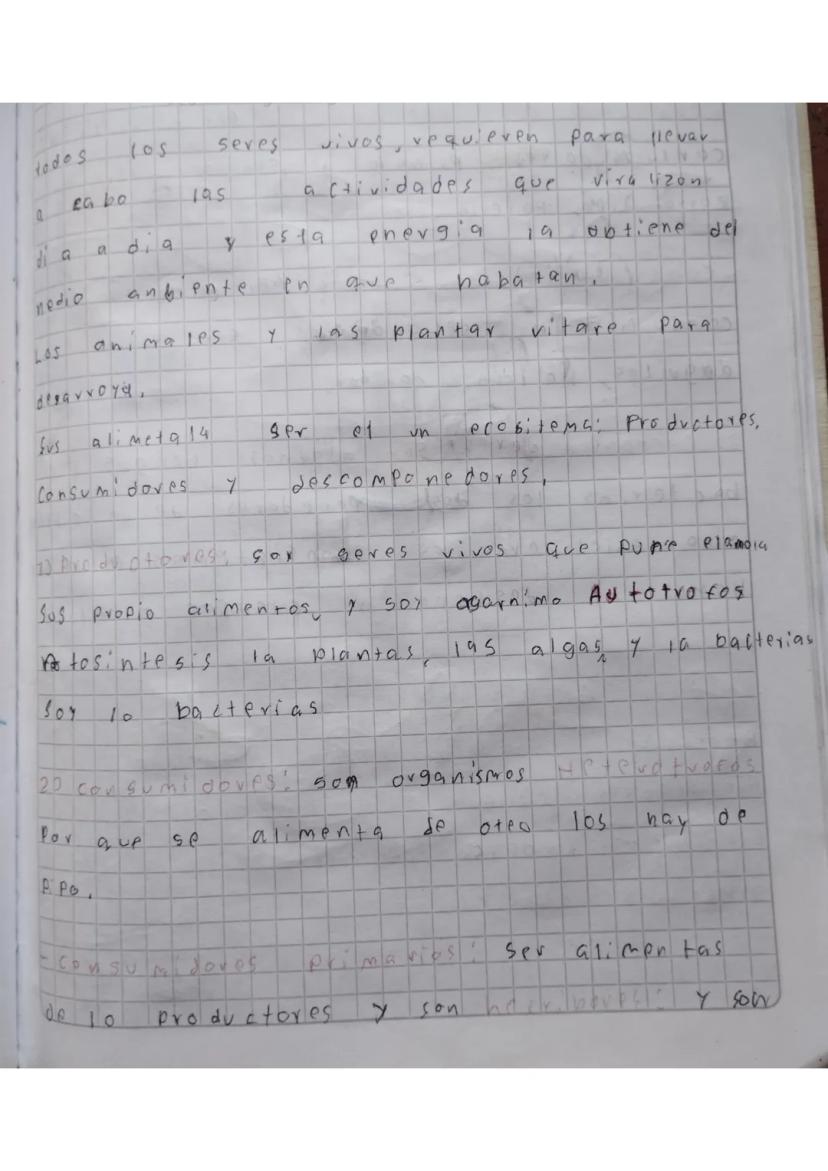 todos los seres vivos, requieren para llevar
a cabo las actividades que viralizon
di a a dia y esta energia la obtiene del
medio anbiente en que habatan.
Los animales y las plantar vitare para
desarroya.
sus alimetala ser el un ecositema: Productores,
Consumidores y descomponedores.
1) Productores: son seres vivos que pune elamoia
sus propio alimentos, y soy ogarnimo Autotrofos
fotosintesis la plantas, las algas, y la bacterias
soy lo bacterias
2) consumidores: son organismos Heterotrofos
Por que se alimenta de oteo los hay de
- consumidores primarios: ser alimentas
de lo productores y son y son